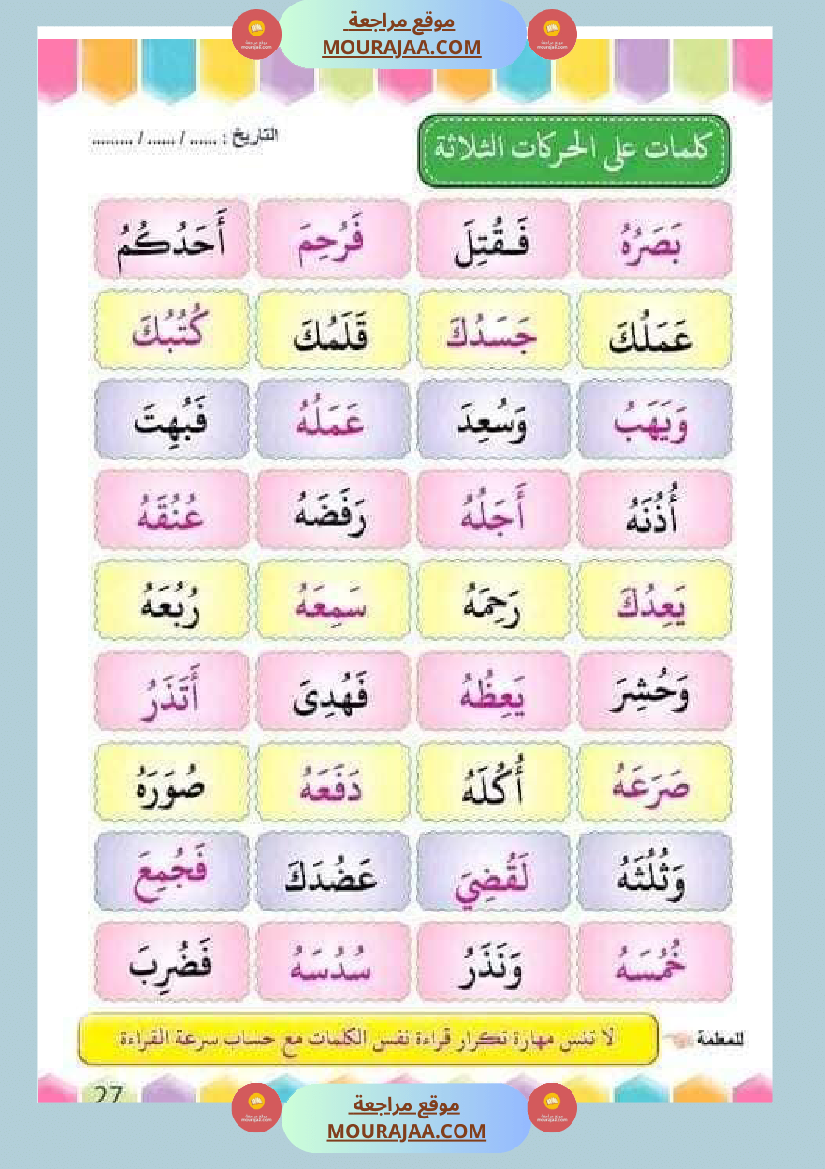 موقع مراجعة
MOURAJAA.COM
التاريخ : ...... / ...... / .........
كلمات على الحركات الثلاثة
بَصَرُهُ فَـقُتِلَ فَرُحِمَ أَحَدُكُمُ
عَمَلُكَ جَسَدُكَ قَلَمُكَ كُتُبُكَ
وَيَهَبُ وَسُعِدَ عَمَلُهُ فَبُهِتَ
أُذُنَهُ أَجَلُهُ رَفَضَهُ عُنُقَهُ
يَعِدُكَ رَحِمَهُ سَمِعَهُ رُبُعَهُ
وَحُشِرَ يَعِظُهُ فَهُدِىَ أَتَذَرُ
صَرَعَهُ أُكُلَهُ دَفَعَهُ صُوَرَهُ
وَثُلُثَهُ لَقُضِيَ عَضُدَكَ فَجُمِعَ
خُمُسَهُ وَنَذَرُ سُدُسَهُ فَضُرِبَ
للمعلمة لا تنس مهارة تكرار قراءة نفس الكلمات مع حساب سرعة القراءة
27
موقع مراجعة
MOURAJAA.COM